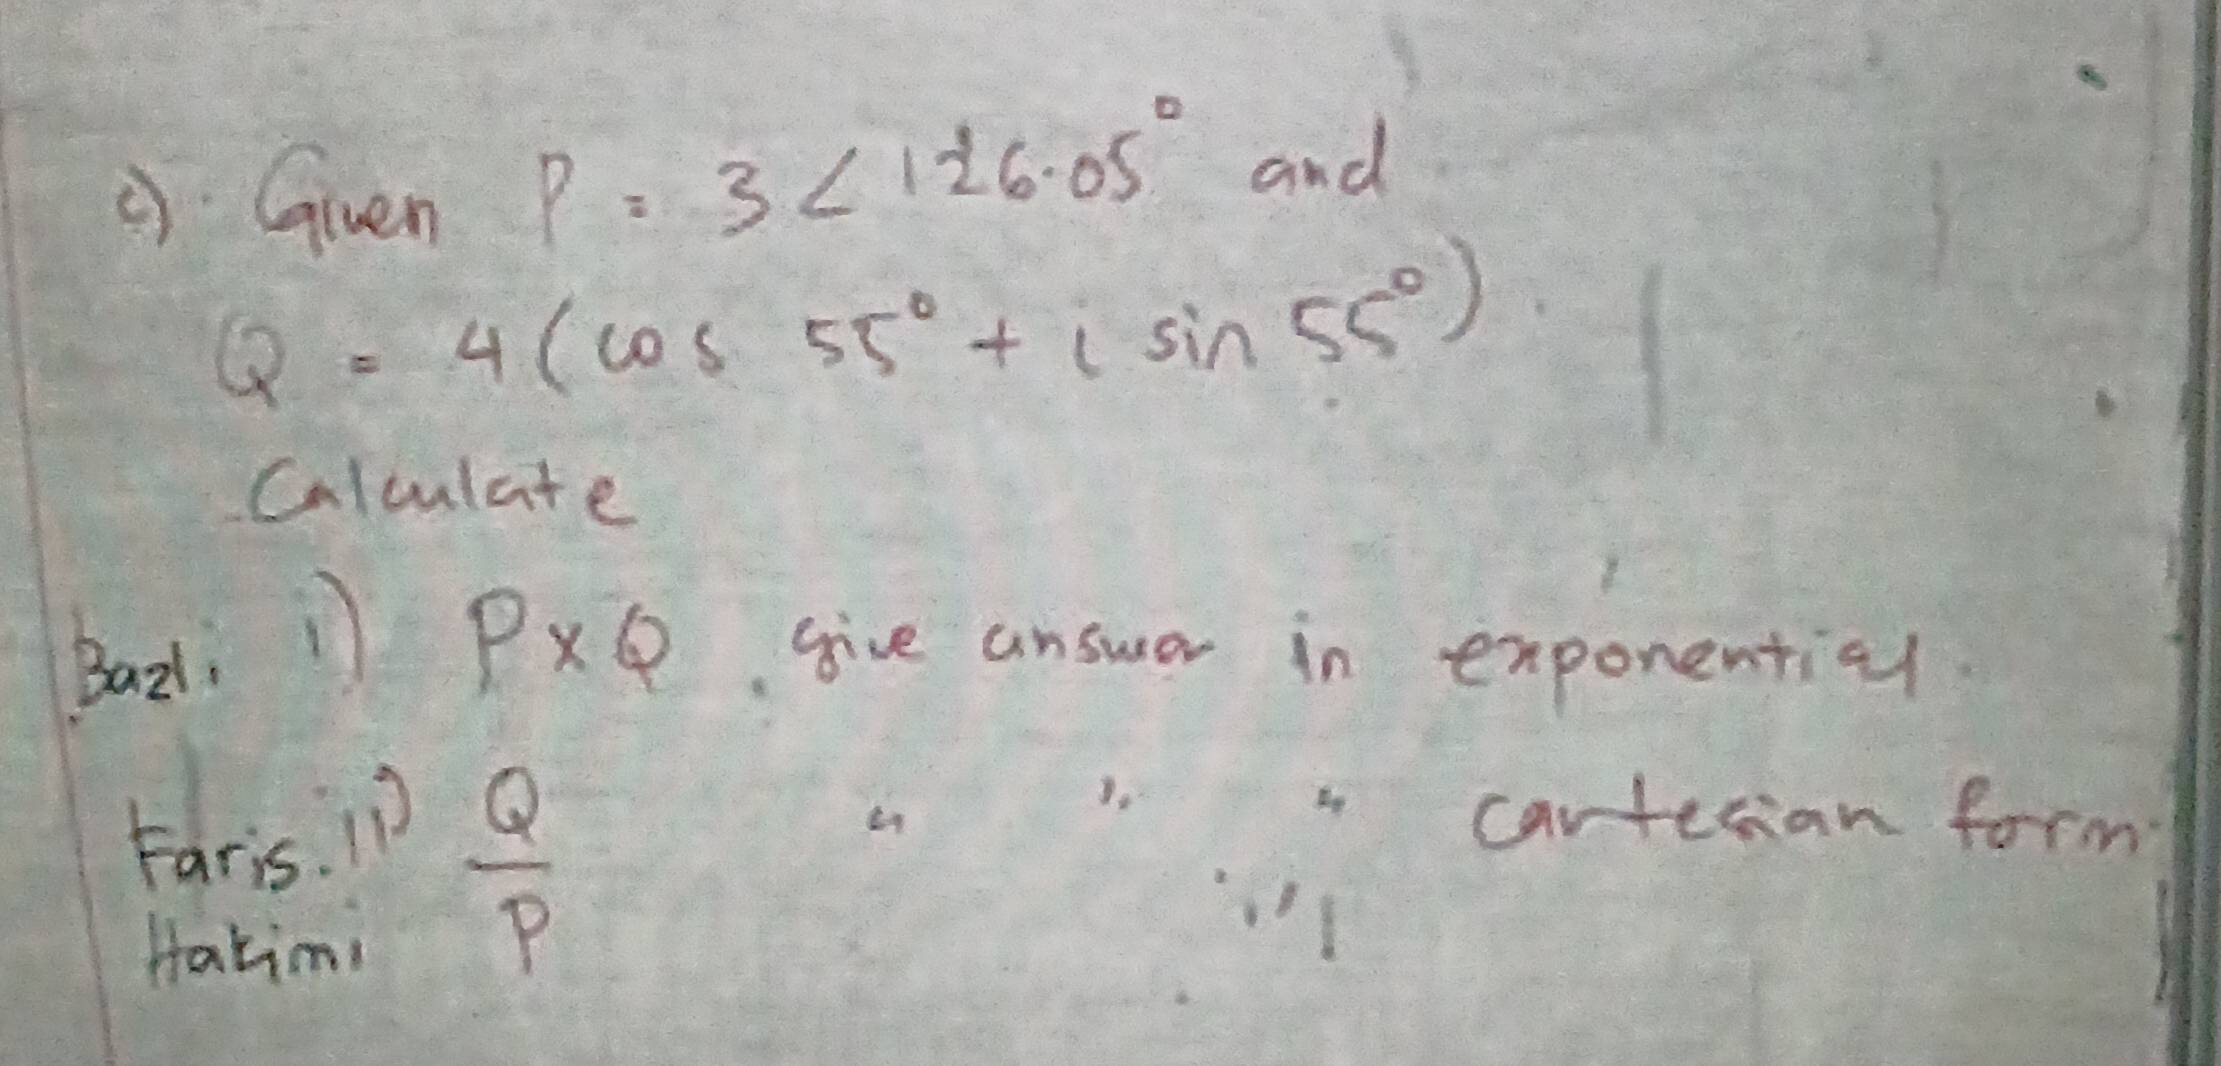 c) Given P = 3 ∠ 126.05° and
Q = 4 ( cos 55° + i sin 55° ).
Calculate
Bazli i) P x Q. give answer in exponential.
Faris. ii) Q/P " " " cartesian form.
Hakimi